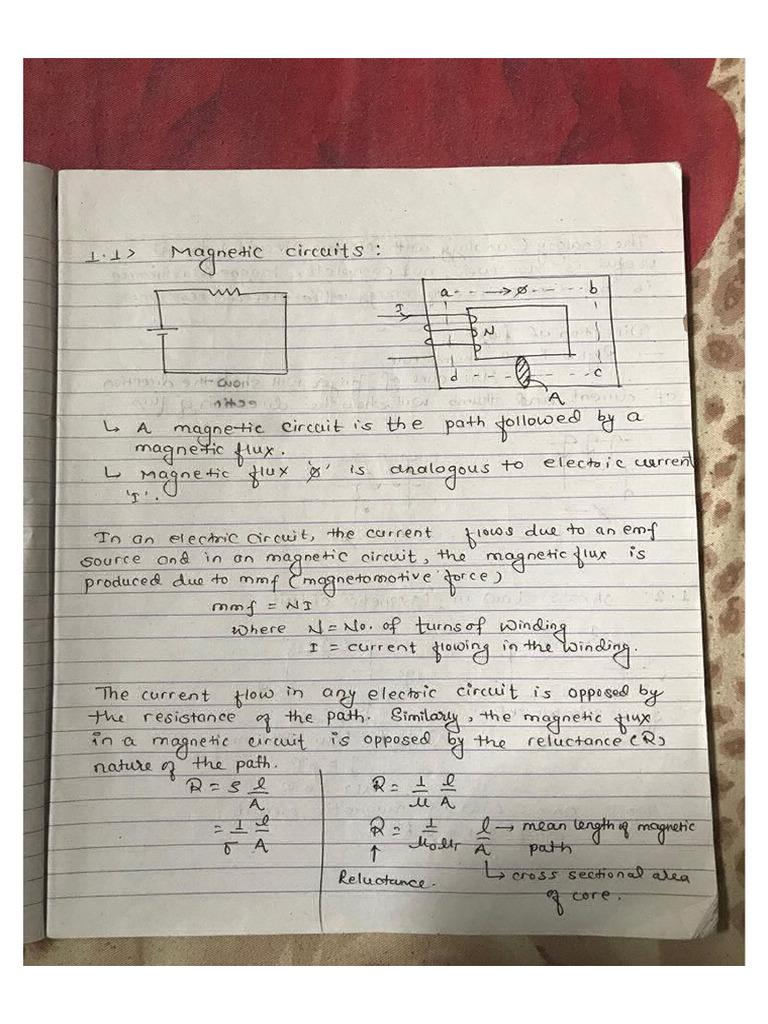 1.1> Magnetic circuits:
a - - → ø - - - - b
I
N
d - - - - - c
A
↳ A magnetic circuit is the path followed by a
magnetic flux.
↳ Magnetic flux 'ø' is analogous to electric current
'I'.
In an electric circuit, the current flows due to an emf
source and in an magnetic circuit, the magnetic flux is
produced due to mmf (magnetomotive force)
mmf = NI
where N = No. of turns of winding
I = current flowing in the winding.
The current flow in any electric circuit is opposed by
the resistance of the path. Similarly, the magnetic flux
in a magnetic circuit is opposed by the reluctance (R)
nature of the path.
R = ρ l/A
= 1/σ l/A
R = 1/μ l/A
R = 1/μ₀μr l/A → mean length of magnetic
path
↑
Reluctance.
↳ cross sectional area
of core.